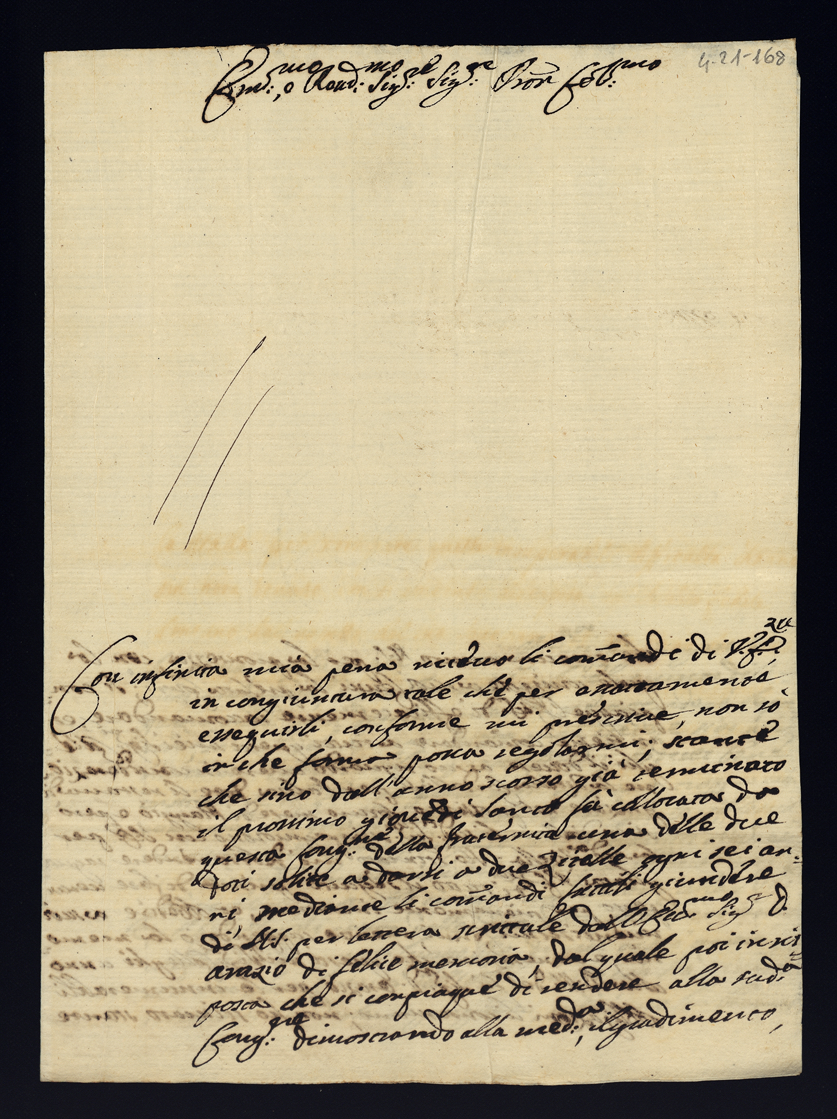 4-21-168
Em:mo, e Rend:mo Sig:re Sig:re Pron Col:mo
Con infinita mia pena ricevo li comãndi di V.
in congiuntura tale che per esattamente
esseguirli, conforme mi prescrive, non sò
in che forma possa regolarmi; stante
che sino dall'anno scorso già terminato
il prossimo giovedi Santo fù collocata da
questa Cong:ne della fraternita una delle due
doti solite a darsi a due Zitelle ogni sei an=
ni, mediante li comãndi fattili giungere
di per lettera scrittale dall' Sig:r D.
orazio di felice memoria, dal quale poi in ris=
posta che si compiaque di rendere alla sud:a
Cong:ne dimostrando alla med:a, il gradimento,